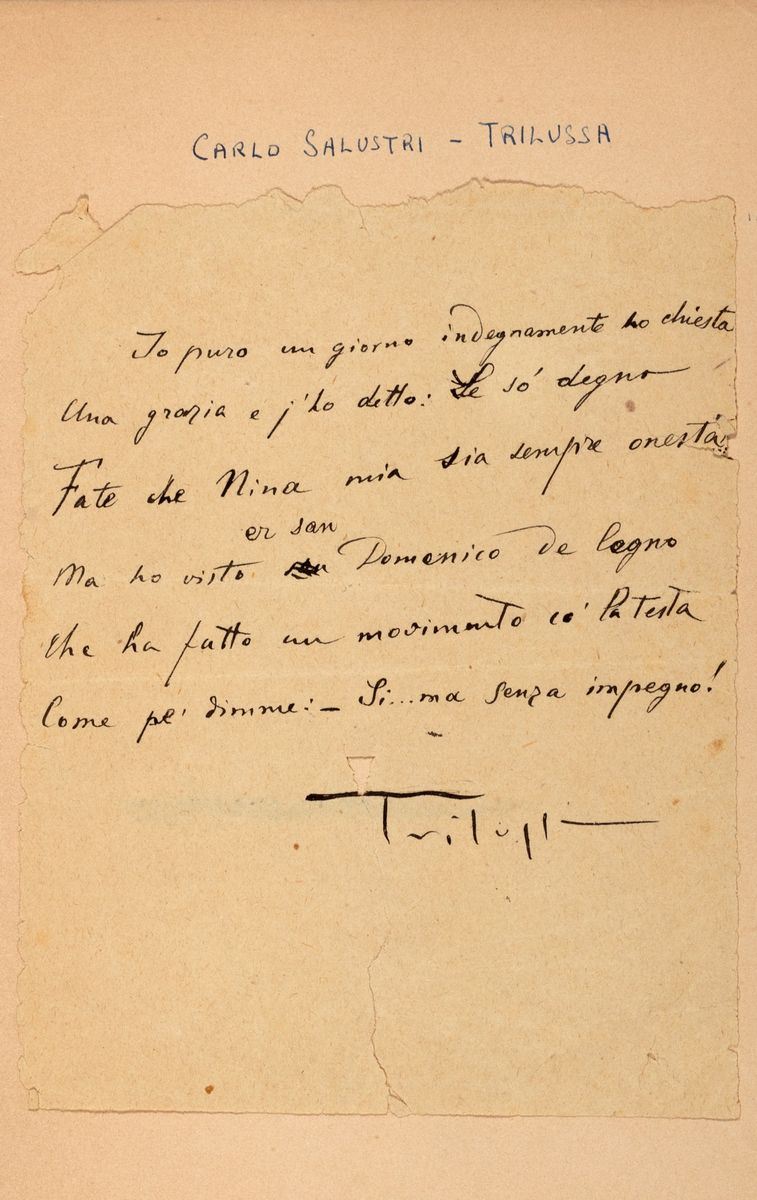 CARLO SALUSTRI – TRILUSSA
Io puro un giorno indegnamente ho chiesta
Una grazia e j'ho detto: Se só degno
Fate che Nina mia sia sempre onesta.
er san
Ma ho visto Domenico de legno
Che ha fatto un movimento co' la testa
Come pe' dimme: – Si... ma senza impegno!
Trilussa